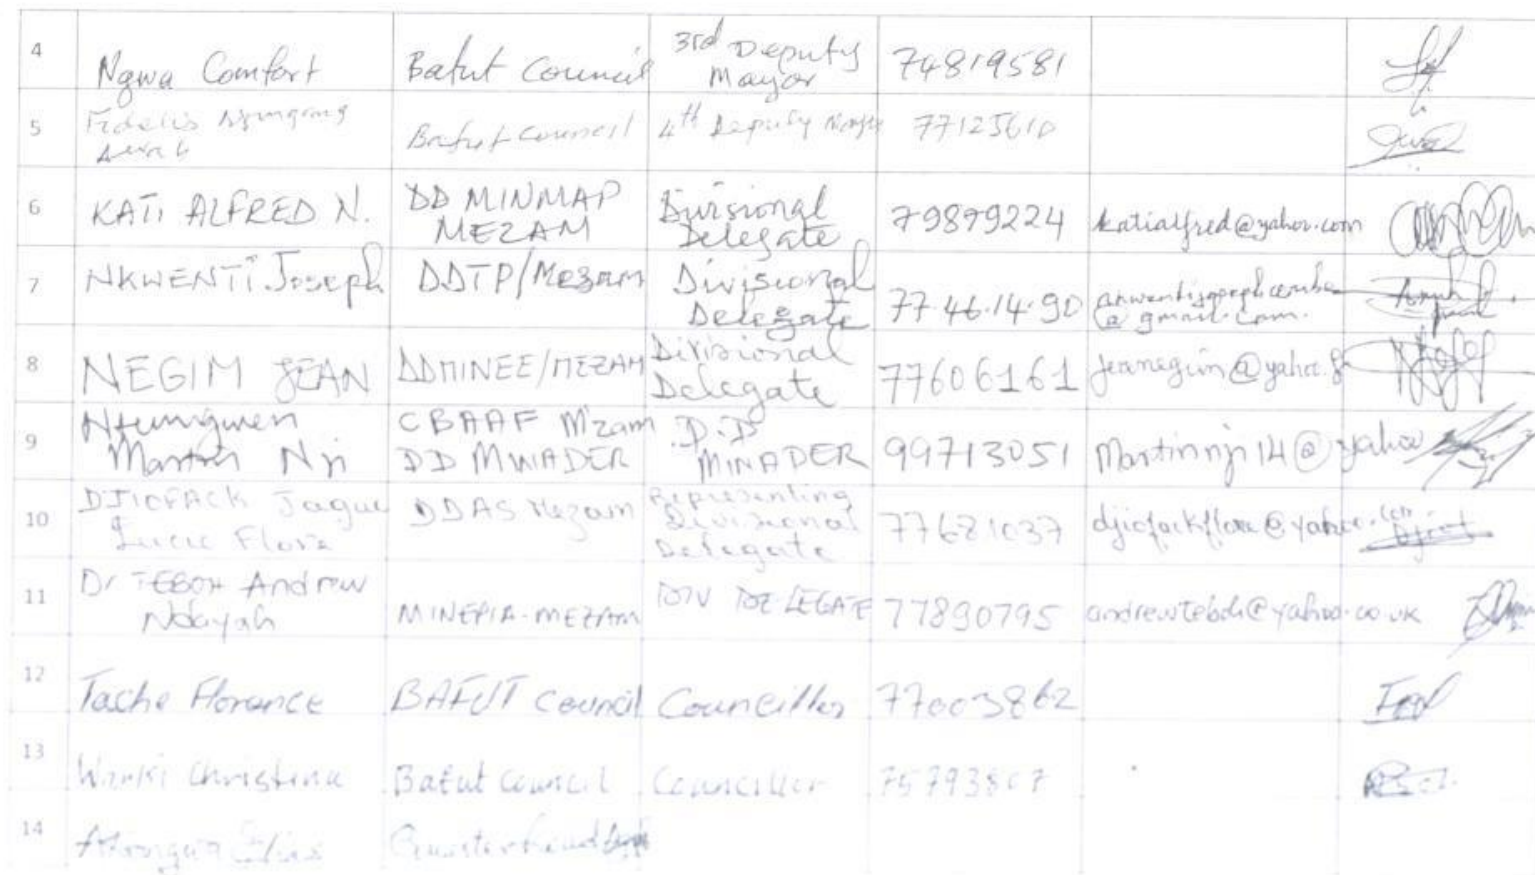 4 Ngwa Comfort Bafut Council 3rd Deputy Mayor 74819581
5 Fidelis Bafut Council 4th Deputy Mayor 77125610
6 KATI ALFRED N. DD MINMAP MEZAM Divisional Delegate 79899224 katialfred@yahoo.com
7 NKWENTI Joseph DDTP/Mezam Divisional Delegate 77.46.14.90 @gmail.com.
8 NEGIM JEAN DDMINEE/MEZAM Divisional Delegate 77606161 jeannegim@yahoo.fr
9 Martin Nji CBAAF Mzam DD MINADER D.D MINADER 99713051 Martinnji14@yahoo
10 DJIOFACK Jague Lucie Flore DDAS Mezam Representing Divisional Delegate 77681037 djiofackflore@yahoo.com
11 Dr TEBOH Andrew Ndayah MINEPIA-MEZAM DIV DELEGATE 77890795 andrewteboh@yahoo.co.uk
12 Tache Florence BAFUT Council Councillor 77003862
13 Christina Bafut Council Councillor 75793807
14 Quarterhead